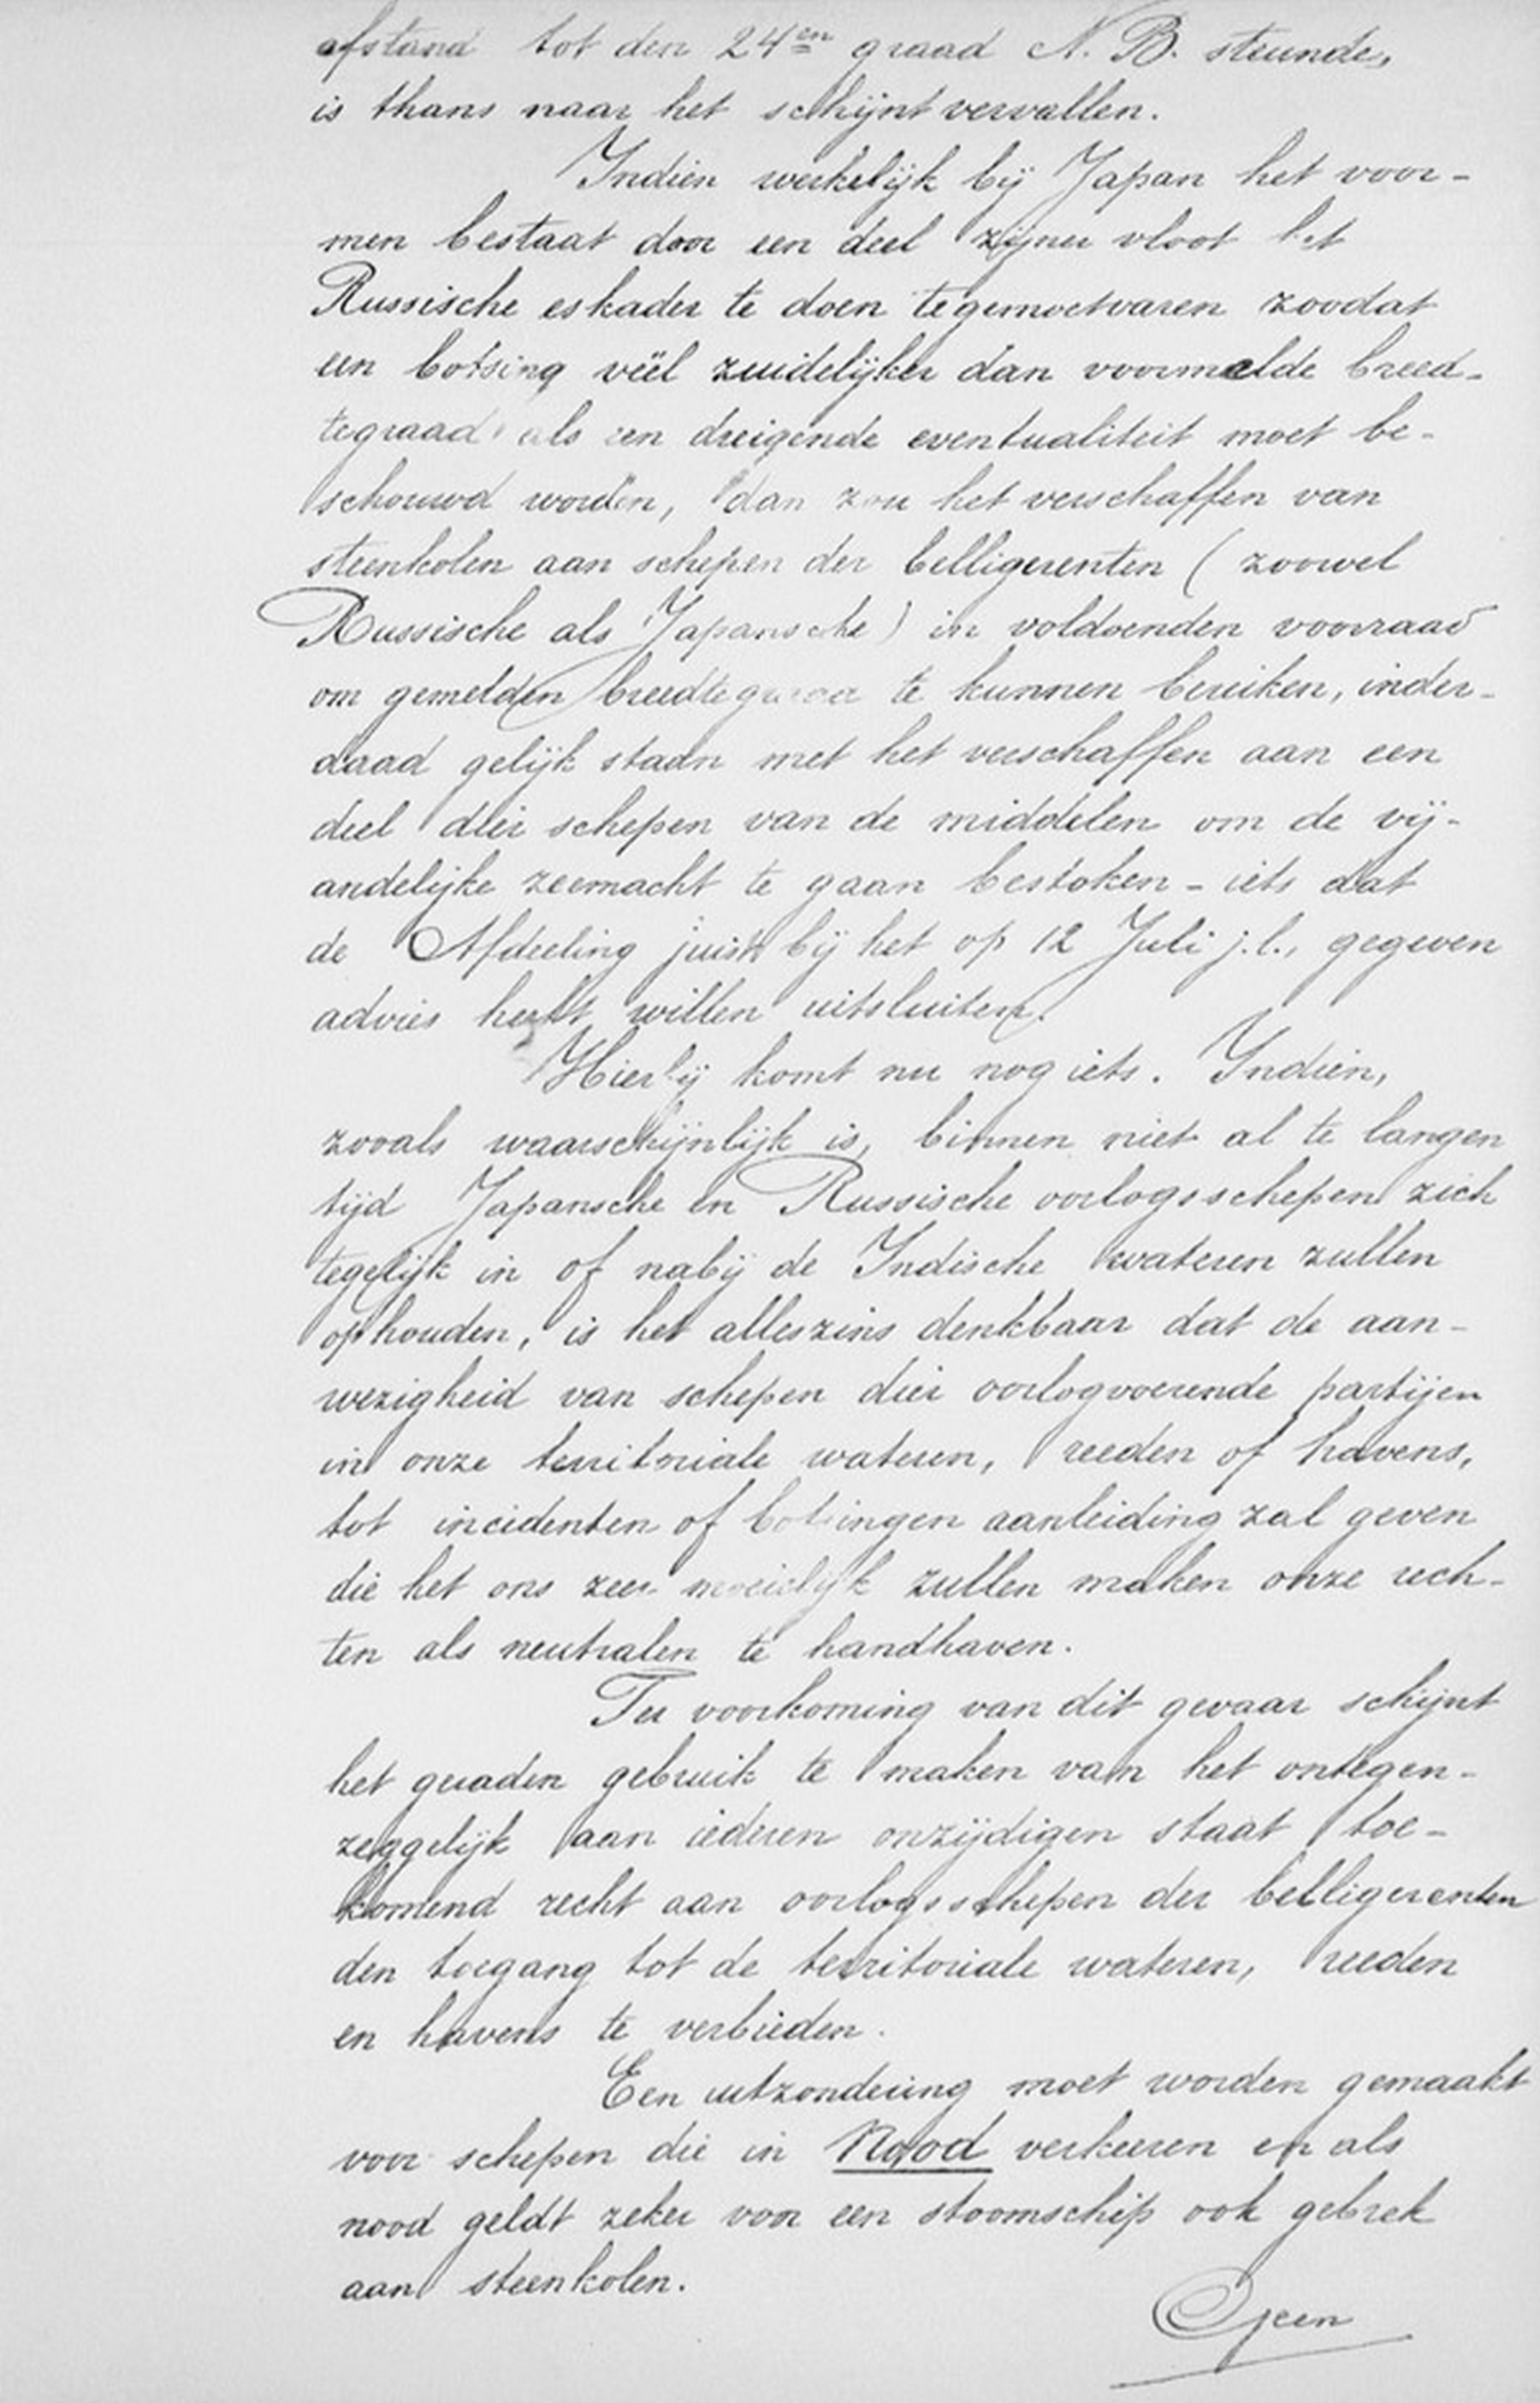 afstand tot den 24en graad N. B. steunde,
is thans naar het schijnt vervallen.
Indien werkelijk bij Japan het voor-
men bestaat door een deel zijner vloot het
Russische eskader te doen tegemoetvaren zoodat
een botsing véél zuidelijker dan voormelde breed-
tegraad als een dreigende eventualiteit moet be-
schouwd worden, dan zou het verschaffen van
steenkolen aan schepen der belligerenten (zoowel
Russische als Japansche) in voldoenden voorraad
om gemelden breedtegraad te kunnen bereiken, inder-
daad gelijk staan met het verschaffen aan een
deel dier schepen van de middelen om de vij-
andelijke zeemacht te gaan bestoken - iets dat
de Afdeeling juist bij het op 12 Juli j.l., gegeven
advies heeft willen uitsluiten.
Hierbij komt nu nog iets. Indien,
zooals waarschijnlijk is, binnen niet al te langen
tijd Japansche en Russische oorlogsschepen zich
tegelijk in of nabij de Indische wateren zullen
ophouden, is het alleszins denkbaar dat de aan-
wezigheid van schepen dier oorlogvoerende partijen
in onze territoriale wateren, reeden of havens,
tot incidenten of botsingen aanleiding zal geven
die het ons zeer moeielijk zullen maken onze rech-
ten als neutralen te handhaven.
Ter voorkoming van dit gevaar schijnt
het geraden gebruik te maken van het ontegen-
zeggelijk aan iederen onzijdigen staat toe-
komend recht aan oorlogsschepen der belligerenten
den toegang tot de territoriale wateren, reeden
en havens te verbieden.
Een uitzondering moet worden gemaakt
voor schepen die in Nood verkeeren en als
nood geldt zeker voor een stoomschip ook gebrek
aan steenkolen.
Geen